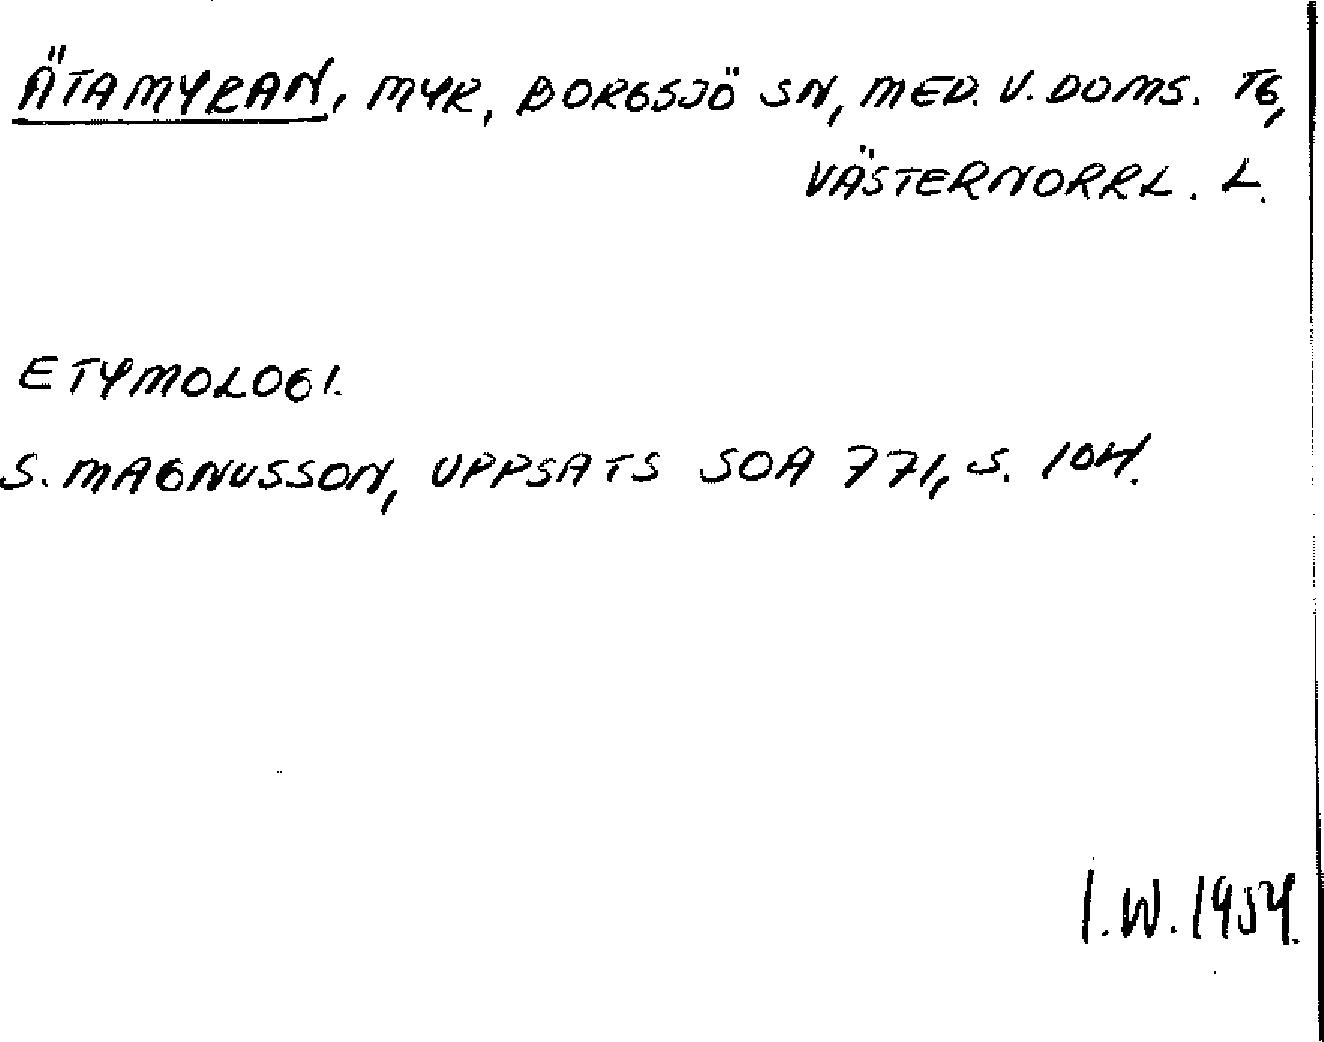 ÄTAMYRAN, MYR, BORGSJÖ SN, MED. V. DOMS. TG,
VÄSTERNORRL. L.
ETYMOLOGI.
S. MAGNUSSON, UPPSATS SOA 771, S. 104.
I.W. 1954.